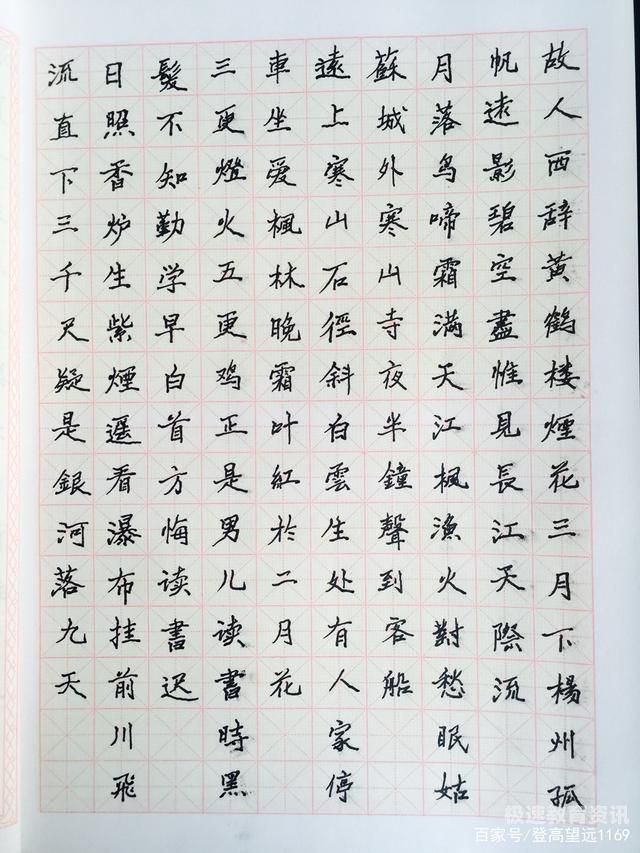 故人西辞黄鶴楼煙花三月下楊州孤
帆遠影碧空盡惟見長江天際流
月落鸟啼霜满天江楓漁火對愁眠姑
蘇城外寒山寺夜半鐘聲到客船
遠上寒山石徑斜白雲生处有人家停
車坐爱楓林晚霜叶紅於二月花
三更燈火五更鸡正是男儿读書時黑
髮不知勤学早白首方悔读書迟
日照香炉生紫煙遥看瀑布挂前川飛
流直下三千尺疑是銀河落九天
极速教育资讯
百家号/登高望远1169